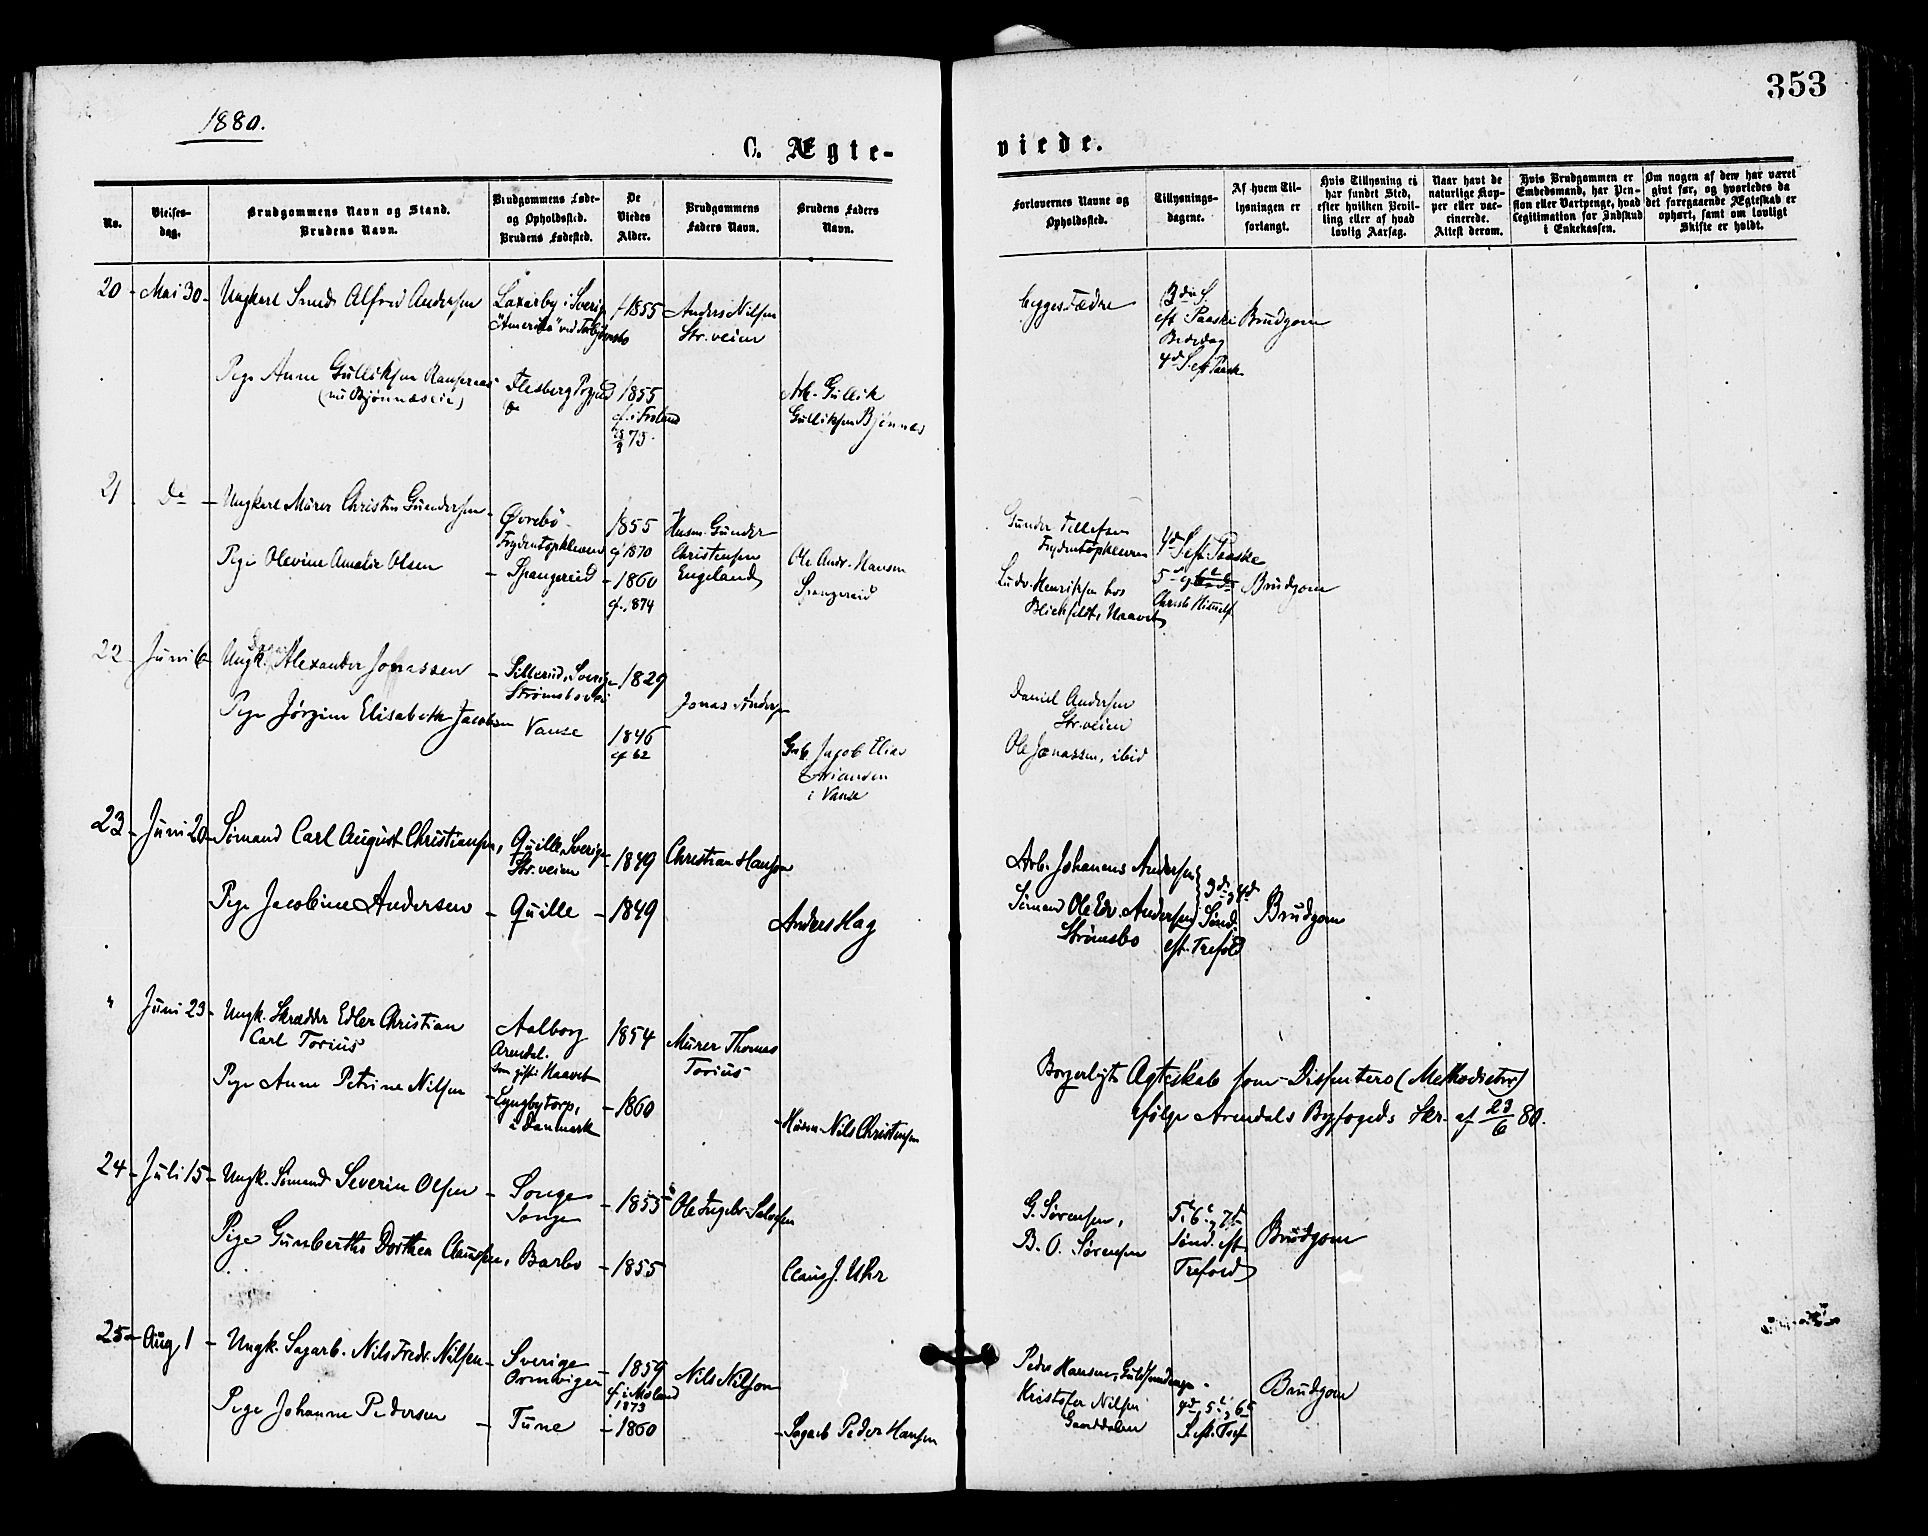 353
1880.
C. Ægte-
viede.
No.
Vielses-
dag.
Brudgommens Navn og Stand.
Brudens Navn.
Brudgommens Føde-
og Opholdssted.
Brudens Fødested.
De
Viedes
Alder.
Brudgommens
Faders Navn.
Brudens Faders
Navn.
Forlovernes Navne og
Opholdssted.
Tillysnings-
dagene.
Af hvem Til-
lysningen er
forlangt.
Hvis Tillysning ei
har fundet Sted,
efter hvilken Bevil-
ling eller af hvad
lovlig Aarsag.
Naar havt de
naturlige Kop-
per eller vac-
cinerede.
Attest derom.
Hvis Brudgommen er
Embedsmand, har Pen-
sion eller Vartpenge, hvad
Legitimation for Indskud
i Enkekassen.
Om nogen af dem har været
givt før, og hvorledes da
det foregaaende Ægteskab er
ophørt, samt om lovligt
Skifte er holdt.
20 Mai 30 Ungkarl Smed Alfred Andersen
Laxarby i Sverig
"Amerika" ved
1855
Anders Nilsen
Str. veien
begges Fædre
3die S.
eft. Paaske
Bededag
4d S. eft. Paask
Brudgom
Pige Anne Gulliksen
Flesberg
1855
cf. i Froland
75.
Arb. Gullik
Gulliksen Bjønnes
21 Do Ungkarl Murer Christen Gundersen
Øvrebø
1855
cf 1870
Husm. Gunder
Christensen
Engeland
Gunder Tellefsen
4d S. eft. Paaske
Brudgom
Pige Olevine Amalie Olsen
Spangereid
1860
cf. 1874
Ole Andr. Hansen
Spangereid
Ludv. Henriksen hos
Blickfeldt, Haavet
22 Juni 6 Ungk. Alexander Jonassen
Sillerud, Sverige
1829
Jonas Anders
Daniel Andersen
Str. veien
Pige Jørgine Elisabeth Jacobsen
Vanse
1846
cf 62
Jacob Elias
i Vanse
Ole Jonassen, ibid
23 Juni 20 Sømand Carl August Christiansen,
Quille, Sverige
Str. veien
1849
Christian Hansen
Arb. Johannes Andersen
3die og 4de
Sønd.
eft. Trefold
Brudgom
Pige Jacobine Andersen
Quille
1849
Anders Hag
Sømand Ole Edv. Andersen
Strømsbo
" Juni 23 Ungk. Skrædder Edler Christian
Carl Torius
Aalborg
Arendal.
som gift: Haavet
1854
Murer Thomas
Torius
Borgerligt Ægteskab som Dissentere (Methodister)
ifølge Arendals Byfogeds Skr. af 23/6 80.
Pige Anne Petrine Nilsen
Lyngbytorp,
i Danmark
1860
Husm. Nils Christensen
24 Juli 15 Ungk. Sømand Severin Olsen
Songe
Songe
1855
Ole Ingebr. Salvesen
G. Sørensen,
B. O. Sørensen
5t, 6t og 7d
Sønd. eft.
Trefold
Brudgom
Pige Gunberthe Dorthea Claussen,
Barbo
1855
Claus J. Uhr
25 Aug. 1 Ungk. Sagarb. Nils Fredr. Nilsen
Sverige
1859
cf. i Moland
1873
Nils Nilsen
Peder Hansen,
Kristofer Nilsen
Gaarddalen
4de, 5t, 6t
S. eft. Tref
Brudgom
Pige Johanne Pedersen
Tune
1860
Sagarb Peder Hansen